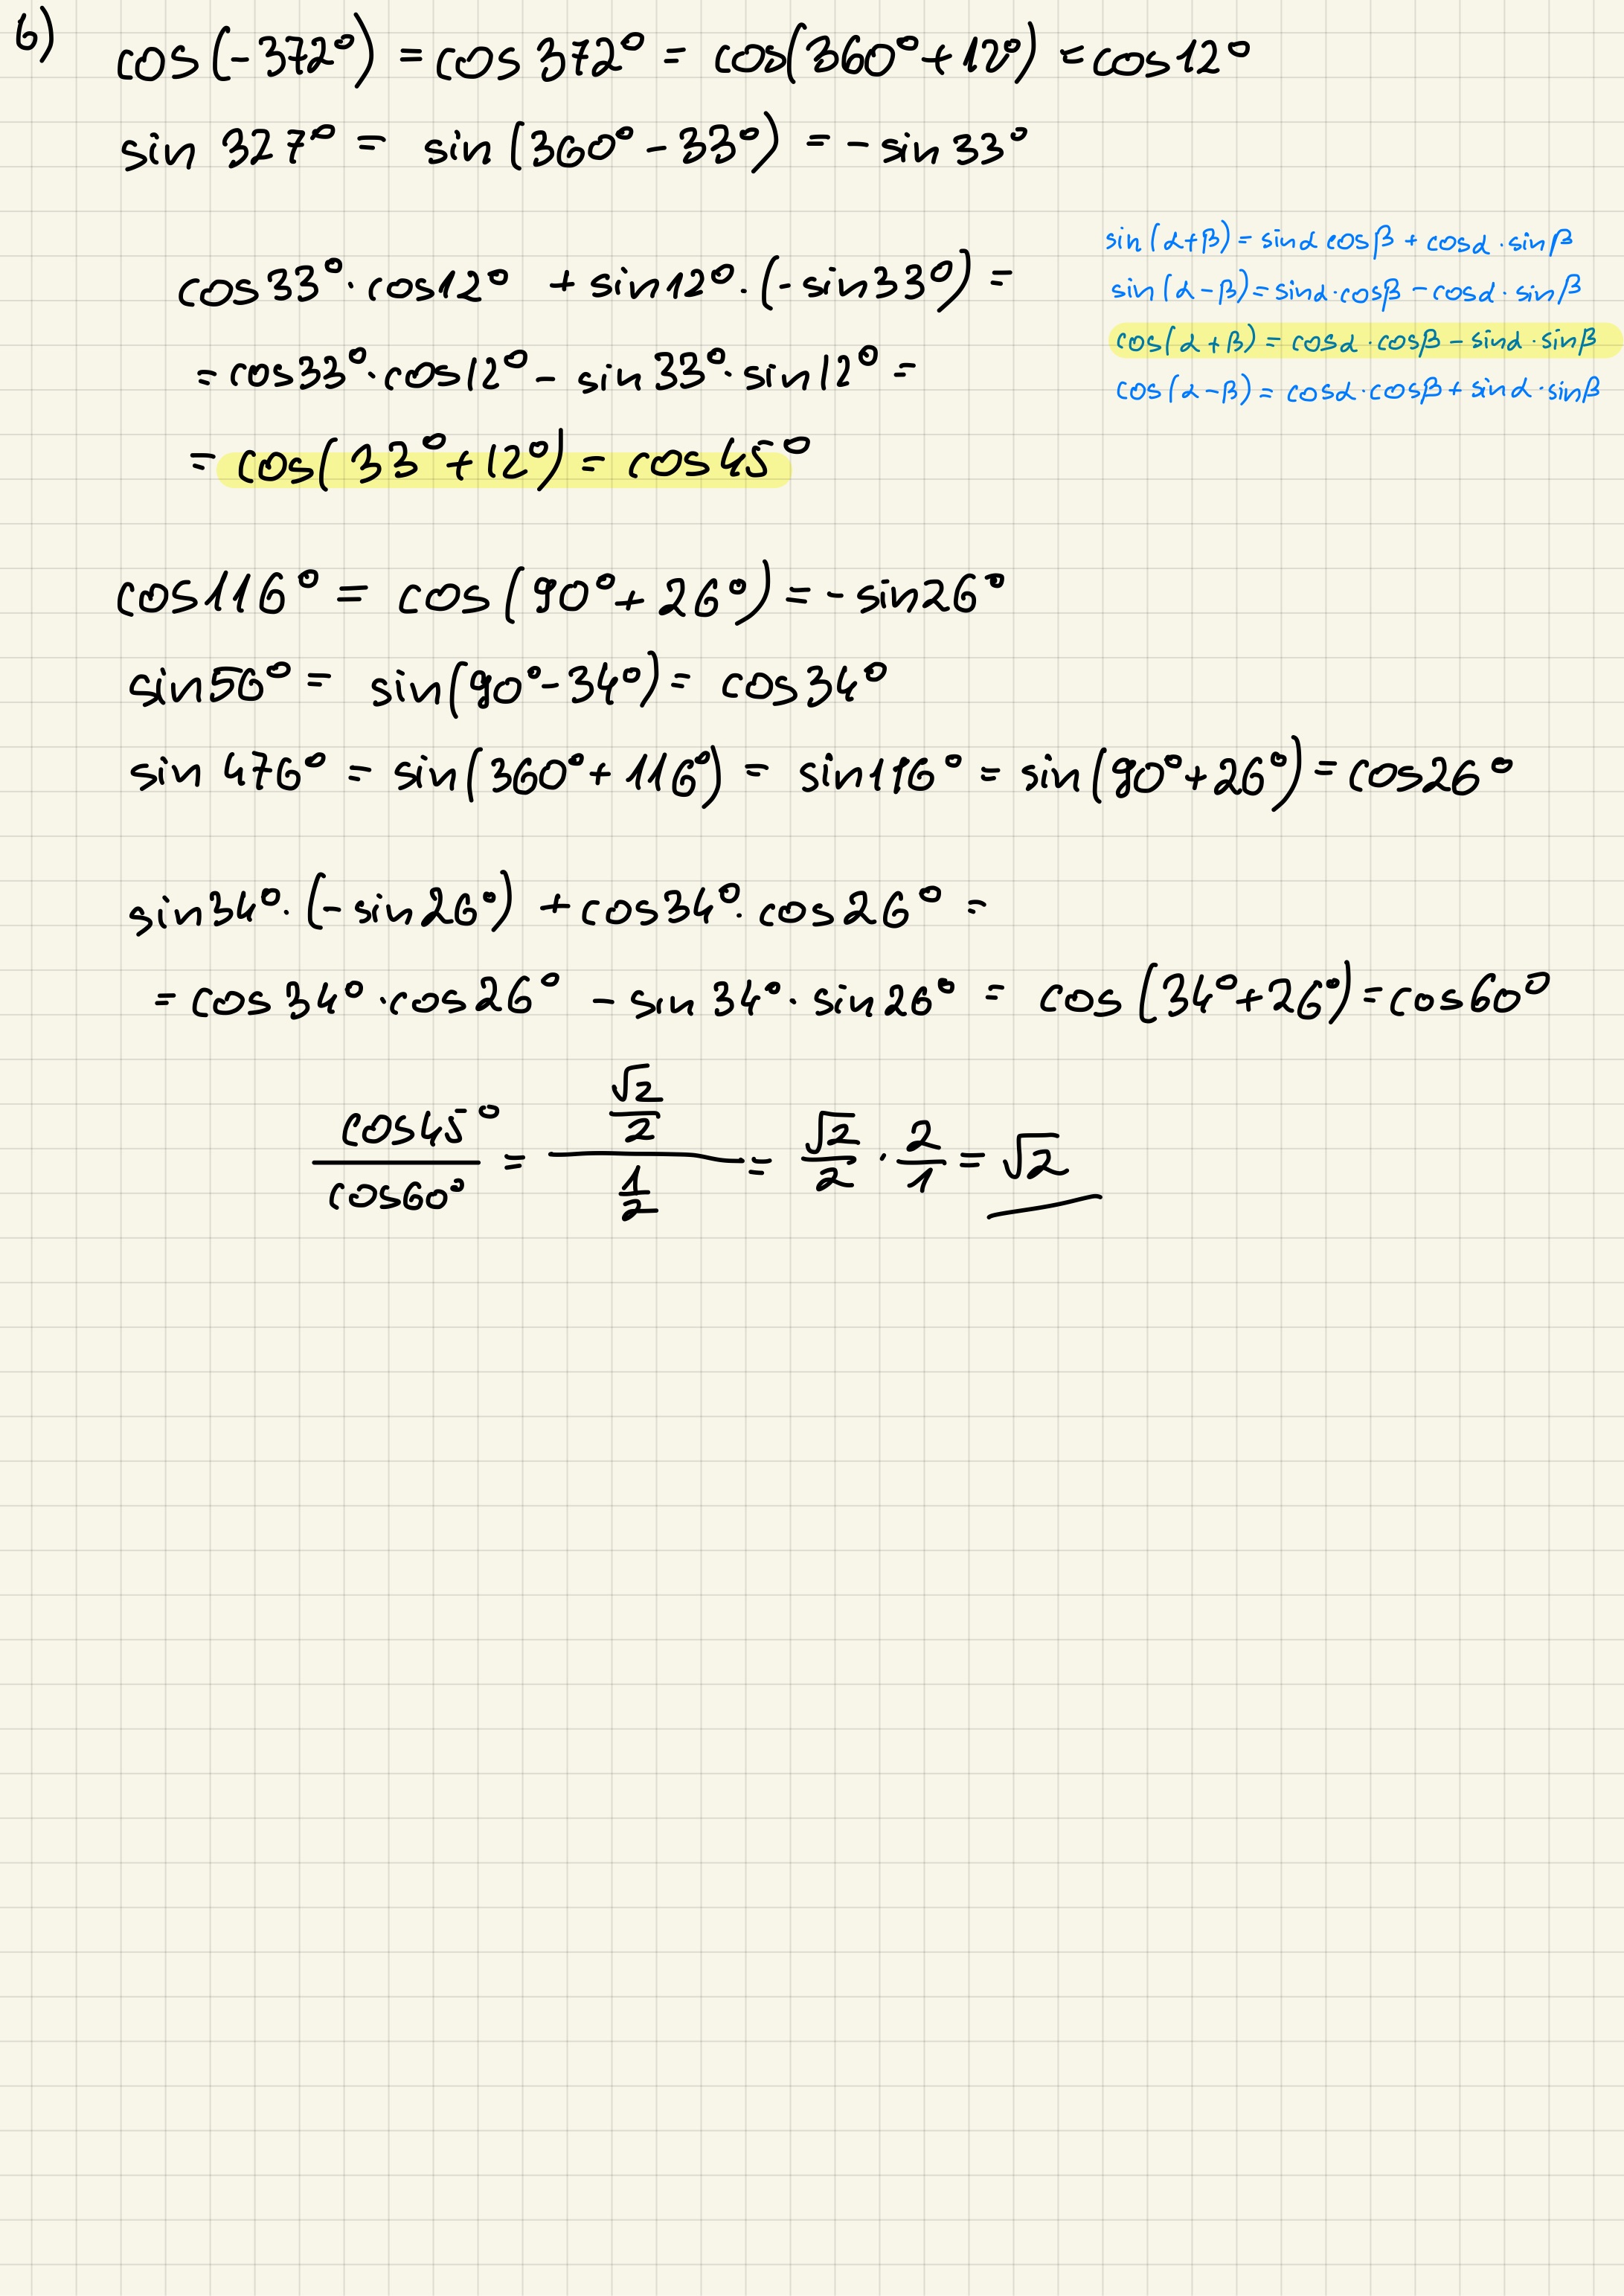 6)
cos(-372°) = cos 372° = cos(360° + 12°) = cos12°
sin 327° = sin (360° - 33°) = - sin 33°
sin (α+β) = sinα cosβ + cosα · sinβ
sin (α-β) = sinα·cosβ - cosα · sinβ
cos(α+β) = cosα · cosβ - sinα · sinβ
cos (α-β) = cosα·cosβ + sinα · sinβ
cos33° · cos12° + sin12° · (- sin33°) =
= cos33° · cos12° - sin33° · sin12° =
= cos(33° + 12°) = cos45°
cos116° = cos (90° + 26°) = - sin26°
sin56° = sin(90° - 34°) = cos34°
sin 476° = sin(360° + 116°) = sin116° = sin(90° + 26°) = cos26°
sin34° · (- sin26°) + cos34° · cos26° =
= cos34° · cos26° - sin 34° · sin26° = cos (34° + 26°) = cos60°
cos45° / cos60° = (√2/2) / (1/2) = √2/2 · 2/1 = √2